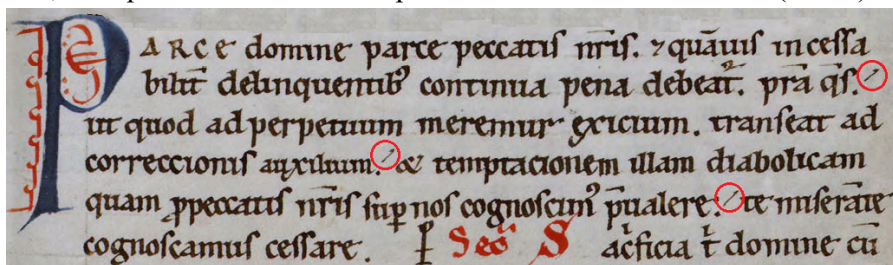 PARCE domine parce peccatis nr̄is. ⁊ quāuis incessa
bilit̄ delinquentibꝰ continua pena debeat᷑. pr̄a q̄s.
ut quod ad perpetuum meremur exicium. transeat ad
correccionis auxilium. & temptacionem illam diabolicam
quam ꝓ peccatis nr̄is suꝑ nos cognoscimꝰ p̄ualere. te miserāte
cognoscamus cessare. Sec̄ S ac̄ficia t̄ domine cū